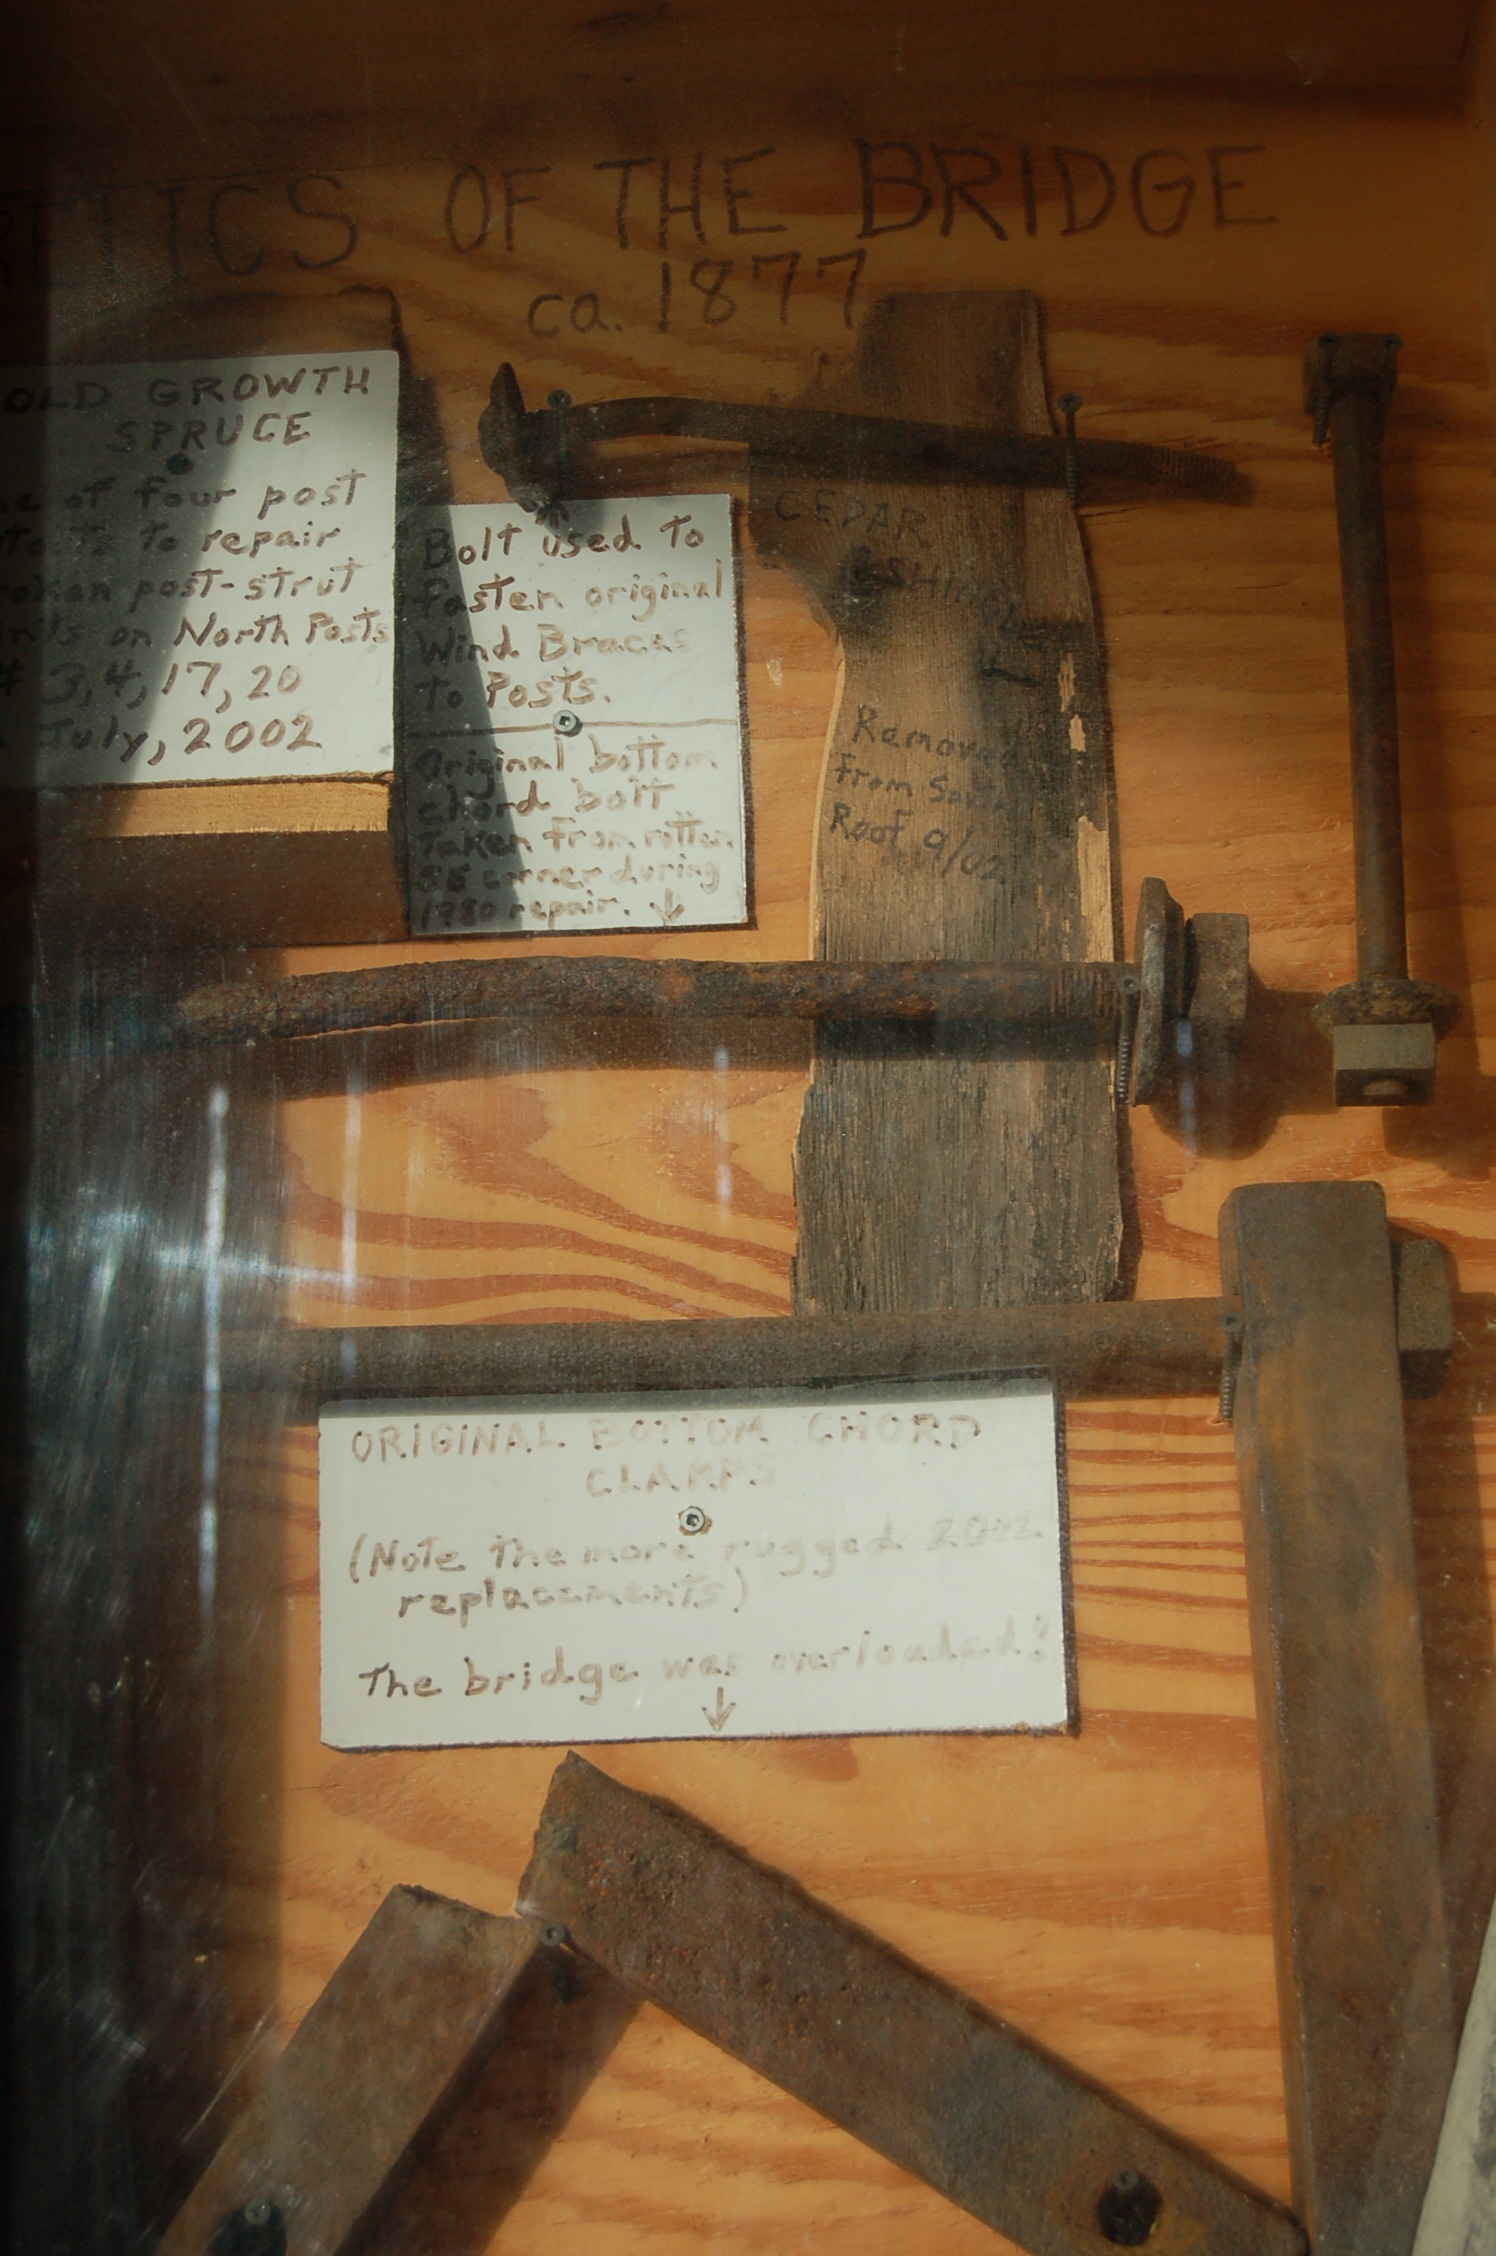 RELICS OF THE BRIDGE
ca. 1877
OLD GROWTH
SPRUCE
of four post
to repair
post-strut
on North Posts
# 3, 4, 17, 20
July, 2002
Bolt used to
fasten original
Wind Braces
to Posts.
Original bottom
chord bolt
Taken from rotten
SE corner during
1980 repair. ↓
CEDAR
SHINGLE
Removed
from South
Roof 9/02
ORIGINAL BOTTOM CHORD
CLAMPS
(Note the more rugged 2002
replacements)
The bridge was overloaded!
↓